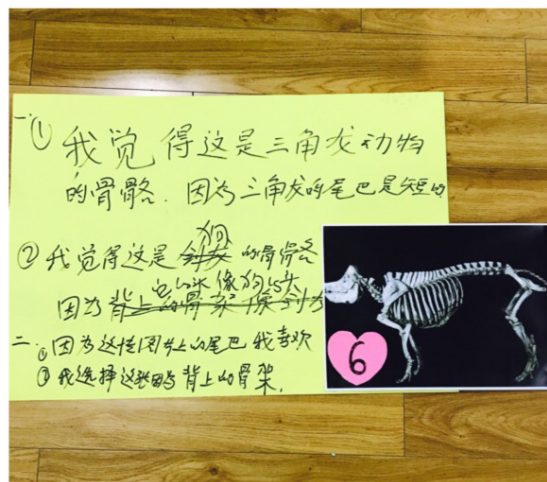 一、① 我觉得这是三角龙动物
的骨骼．因为三角龙的尾巴是短的
② 我觉得这是狗的骨骼
因为它的头像狗的头
二、① 因为这张图片上的尾巴我喜欢
② 我选择这张因为背上的骨架．
6